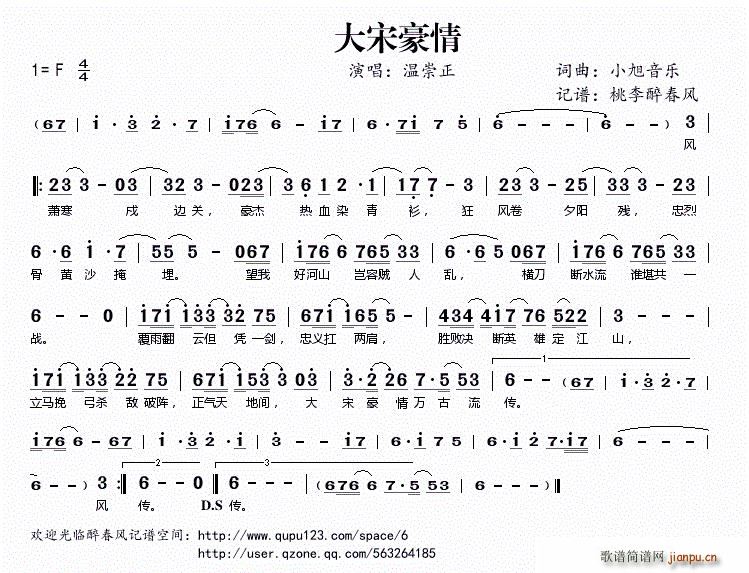 大宋豪情
1=F 4/4 演唱：温崇正 词曲：小旭音乐
记谱：桃李醉春风
（67 | i · 3 2 · 7 | i76 6 - i7 | 6 · 7i 7 5 | 6 - - - | 6 - - ） 3 |
风
|: 23 3 - 03 | 32 3 - 023 | 3 6 1 2 · 1 | 17 7 - 3 | 23 3 - 25 | 33 3 - 23 |
萧寒 戍 边关，豪杰 热血染 青 衫，狂 风卷 夕阳 残，忠烈
6 · 6 i · 7 | 55 5 - 067 | i76 6 765 33 | 6 · 6 5 067 | i76 6 765 33 |
骨 黄 沙 掩 埋。 望我 好河山 岂容贼 人 乱， 横刀 断水流 谁堪共 一
6 - - 0 | i7i i33 32 75 | 67i i65 5 - | 434 4i7 76 522 | 3 - - - |
战。 覆雨翻 云但 凭 一剑，忠义扛 两肩， 胜败决 断英 雄 定 江 山，
1
i7i i33 22 75 | 67i i53 3 03 | 3 · 2 26 7·5 53 | 6 - - （67 | i · 3 2 · 7 |
立马挽 弓杀 敌 破阵，正气天 地间，大 宋 豪 情 万 古 流 传。
i76 6 - 67 | i · 3 2 i | 3 - - i7 | 6 · i 7 5 | 6 · i2 7·i7 | 6 - - - |
2 3
6 - - ） 3 :| 6 - - 0 || 6 - - - | （676 86 7·5 53 | 6 - - - ） |
风 传。 D.S 传。
欢迎光临醉春风记谱空间：http://www.qupu123.com/space/6
http://user.qzone.qq.com/563264185
歌谱简谱网 jianpu.cn